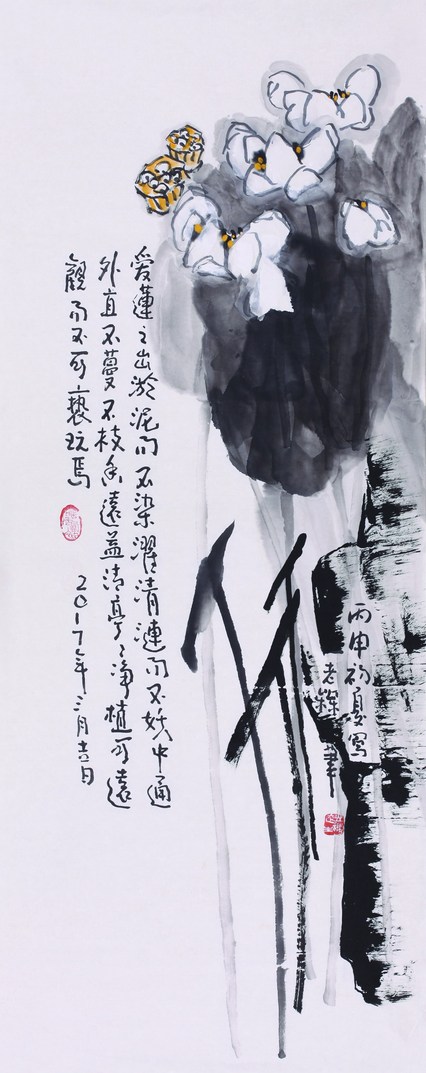 爱蓮之出淤泥而不染濯清漣而不妖中通
外直不蔓不枝香遠益清亭亭净植可遠
觀而不可褻玩焉
2017年三月十六日
丙申初夏寫
老